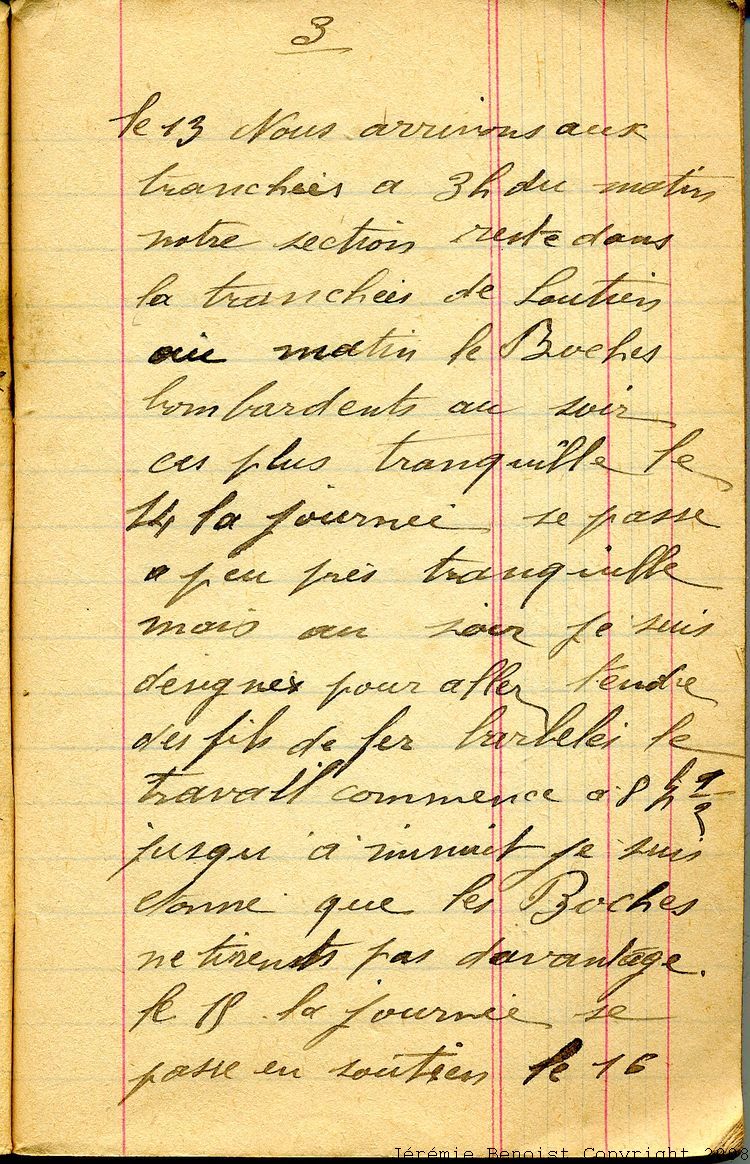 3
le 13 Nous arrivons aux
tranchées a 3h du matin
notre section reste dans
la tranchées de Soutien
au matin le Boches
bombardents au soir
ces plus tranquille le
14 la journée se passe
a peu près tranquille
mais au soir je suis
designer pour aller tendre
des fils de fer barbelés le
travail commence a 8 h 1/2
jusqu'a minuit je suis
étonné que les Boches
ne tirents pas davantage.
le 15 la journée se
passe en soutien le 16
Jérémie Benoist Copyright 2008